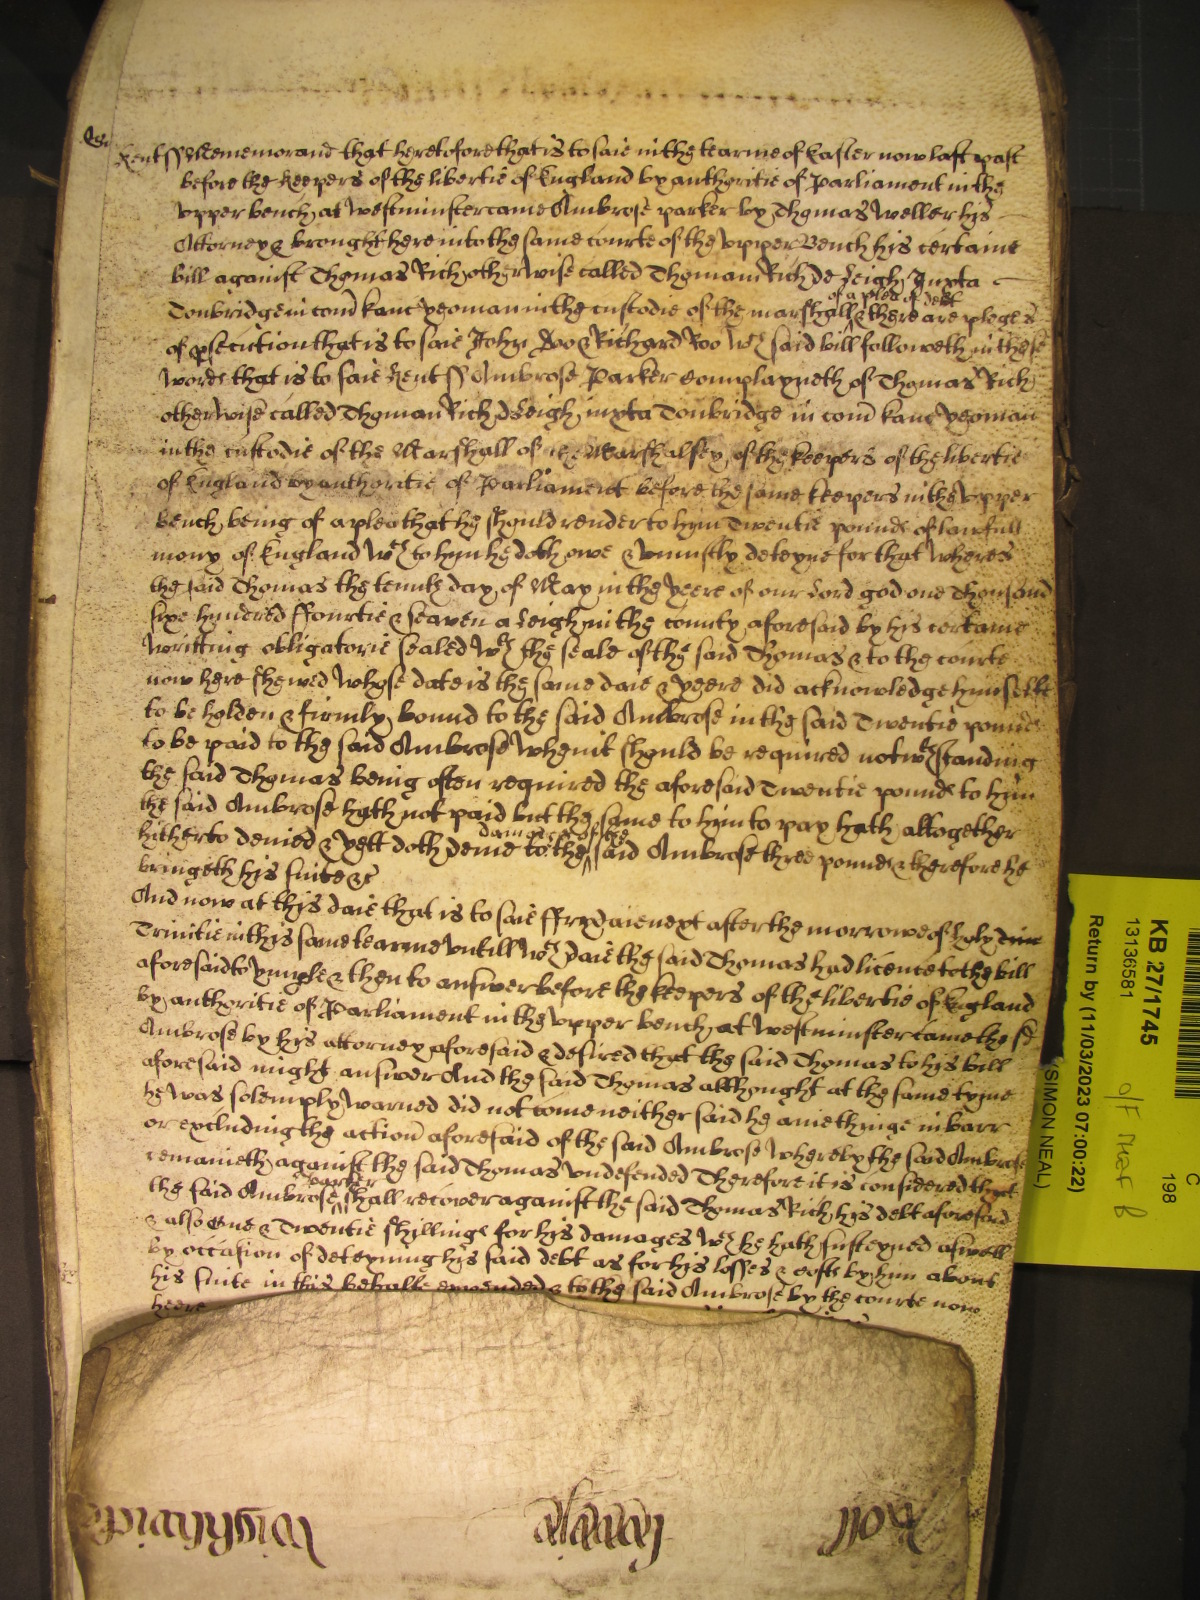 Kent ss Memorand that heretofore that is to saie in the tearme of Easter now last past
before the keepers of the libertie of England by authoritie of Parliament in the
upper bench at Westminster came Ambrose parker by Thomas Weller his
Attorney & brought here into the same courte of the upper Bench his certaine
bill against Thomas Rich otherwise called Thomam Rich de Leigh Juxta
of a plea of debt
Tonbridge in com kanc yeoman in the custodie of the marshall & there are pleges
of psecution that is to saie John Doo & Richard Roo wch said bill followeth in these
words that is to saie Kent ss Ambrose Parker complayneth of Thomas Rich
otherwise called Thomam Rich d Leigh juxta Tonbridge in com kanc yeoman
in the custodie of the Marshall of the Marshalsey of the keepers of the libertie
of England by authoritie of Parliament before the same keepers in the upper
bench being of a plea that he should render to hym Twentie pounds of lawfull
mony of England wch to hym he doth owe & uniustly deteyne for that wheras
the said Thomas the tenth day of May in the yeere of our Lord god one Thousand
sixe hundred ffourtie & seaven a Leigh in the county aforesaid by his certaine
writting obligatorie sealed wth the seale of the said Thomas & to the courte
now here shewed whose date is the same daie & yeere did acknowledge hymselfe
to be holden & firmly bound to the said Ambrose in the said Twentie pounds
to be paid to the said Ambrose when it should be required notwthstanding
the said Thomas being often required the aforesaid Twentie pounds to hym
the said Ambrose hath not paid but the same to hym to pay hath altogether
damages of the
hitherto denied & yett doth denie to the said Ambrose three pounds & therefore he
bringeth his suite &c
And now at this daie that is to saie ffrydaie next after the morrowe of holy
Trinitie in this same tearme untill wch daie the said Thomas had licence to the bill
aforesaid to ymple & then to answer before the keepers of the libertie of England
by authoritie of Parliament in the upper bench at Westminster came the sd
Ambrose by his attorney aforesaid & desired that the said Thomas to his bill
aforesaid might answer And the said Thomas althought at the same tyme
he was solemply warned did not come neither said he anie thinge in barr
or excluding the action aforesaid of the said Ambrose whereby the said Ambrose
remaineth against the said Thomas undefended Therefore it is considered that
parker
the said Ambrose shall recover against the said Thomas Rich his debt aforesaid
& also One & Twentie shillings for his damages wch he hath susteyned aswell
by occasion of deteyning his said debt as for his losses & costs by hym about
his suite in this behalfe expended & to the said Ambrose by the courte now
heere
Wightwicke
Trinity
Roll
KB 27/1745
13136581
Return by (11/03/2023 07:00:22)
(SIMON NEAL)
198
C